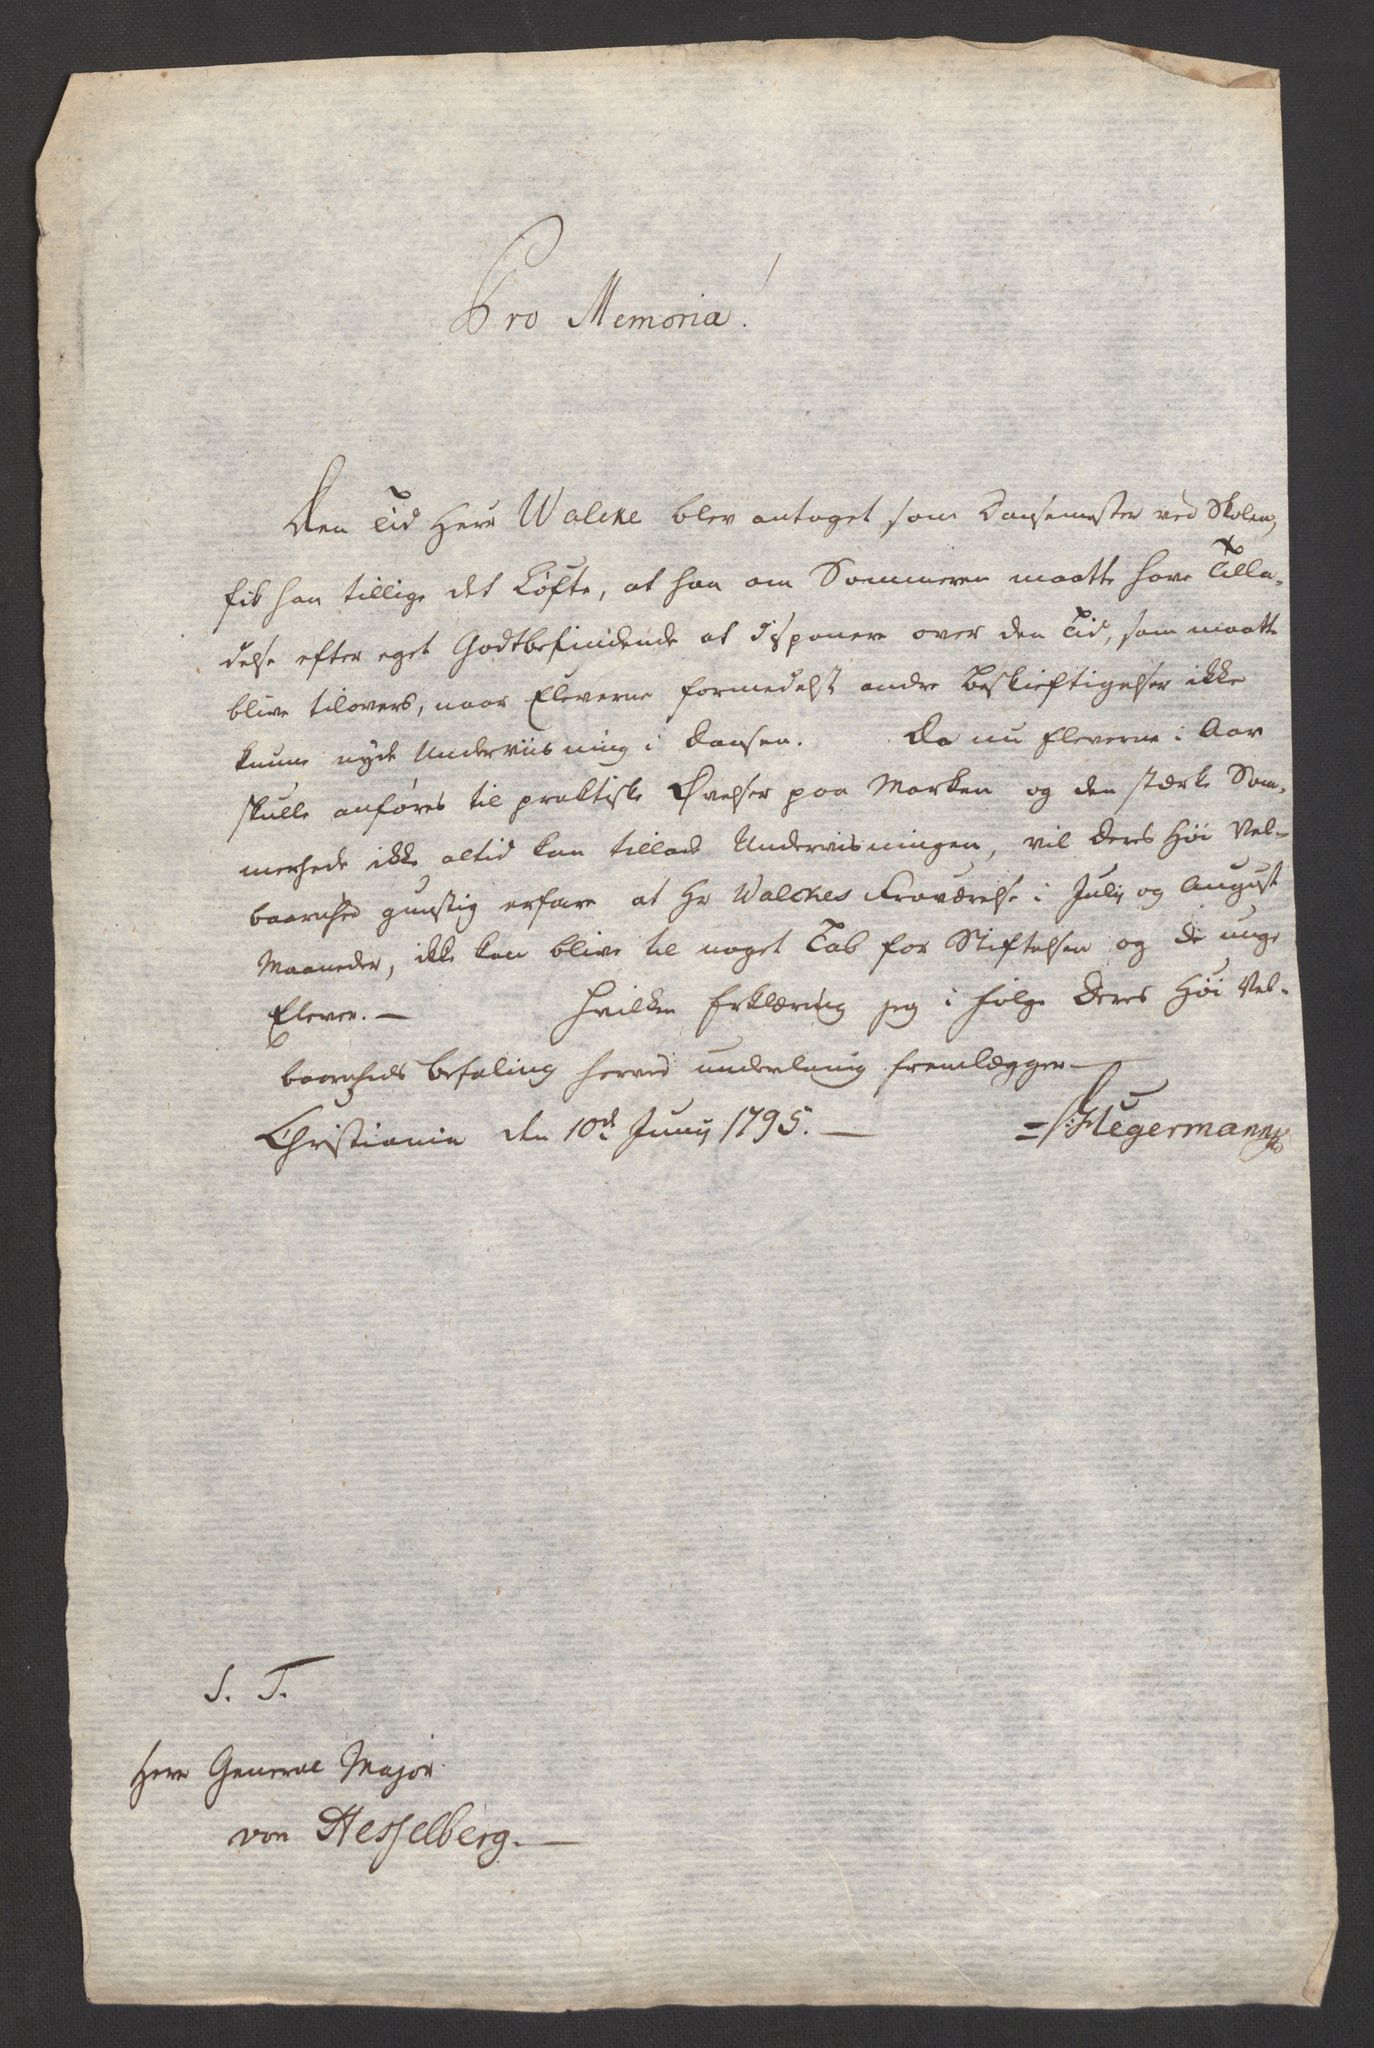 Pro Memoria!
Den Tid Herr Walcke blev antaget som Dansemester ved Skolen,
fik han tillige det Løfte, at han om Sommeren maatte have Tilla-
delse efter eget Godtbefindende at disponere over den Tid, som maatte
blive tilovers, naar Eleverne formedelst andre Beskieftigelser ikke
kunne nyde Underviisning i Dansen. Da nu Eleverne i Aar
skulle anføres til praktiske Øvelser paa Marken og den stærke Som-
merhede ikke altid kan tillade Undervisningen, vil Deres Høi Vel-
baarenhed gunstig erfare at Hr Walckes Fraværelse i Julij og August
Maaneder, ikke kan blive til noget Tab for Stiftelsen og de unge
Elever. — Hvilken Erklæring jeg i Følge Deres Høi Vel-
baarenheds Befaling herved underdanig fremlægger —
Christiania den 10de Junij 1795. — Hegermann
S. T.
Herr General Major
von Hesselberg. —